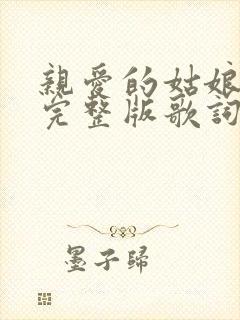 親愛的姑娘
完整版歌詞
墨子歸